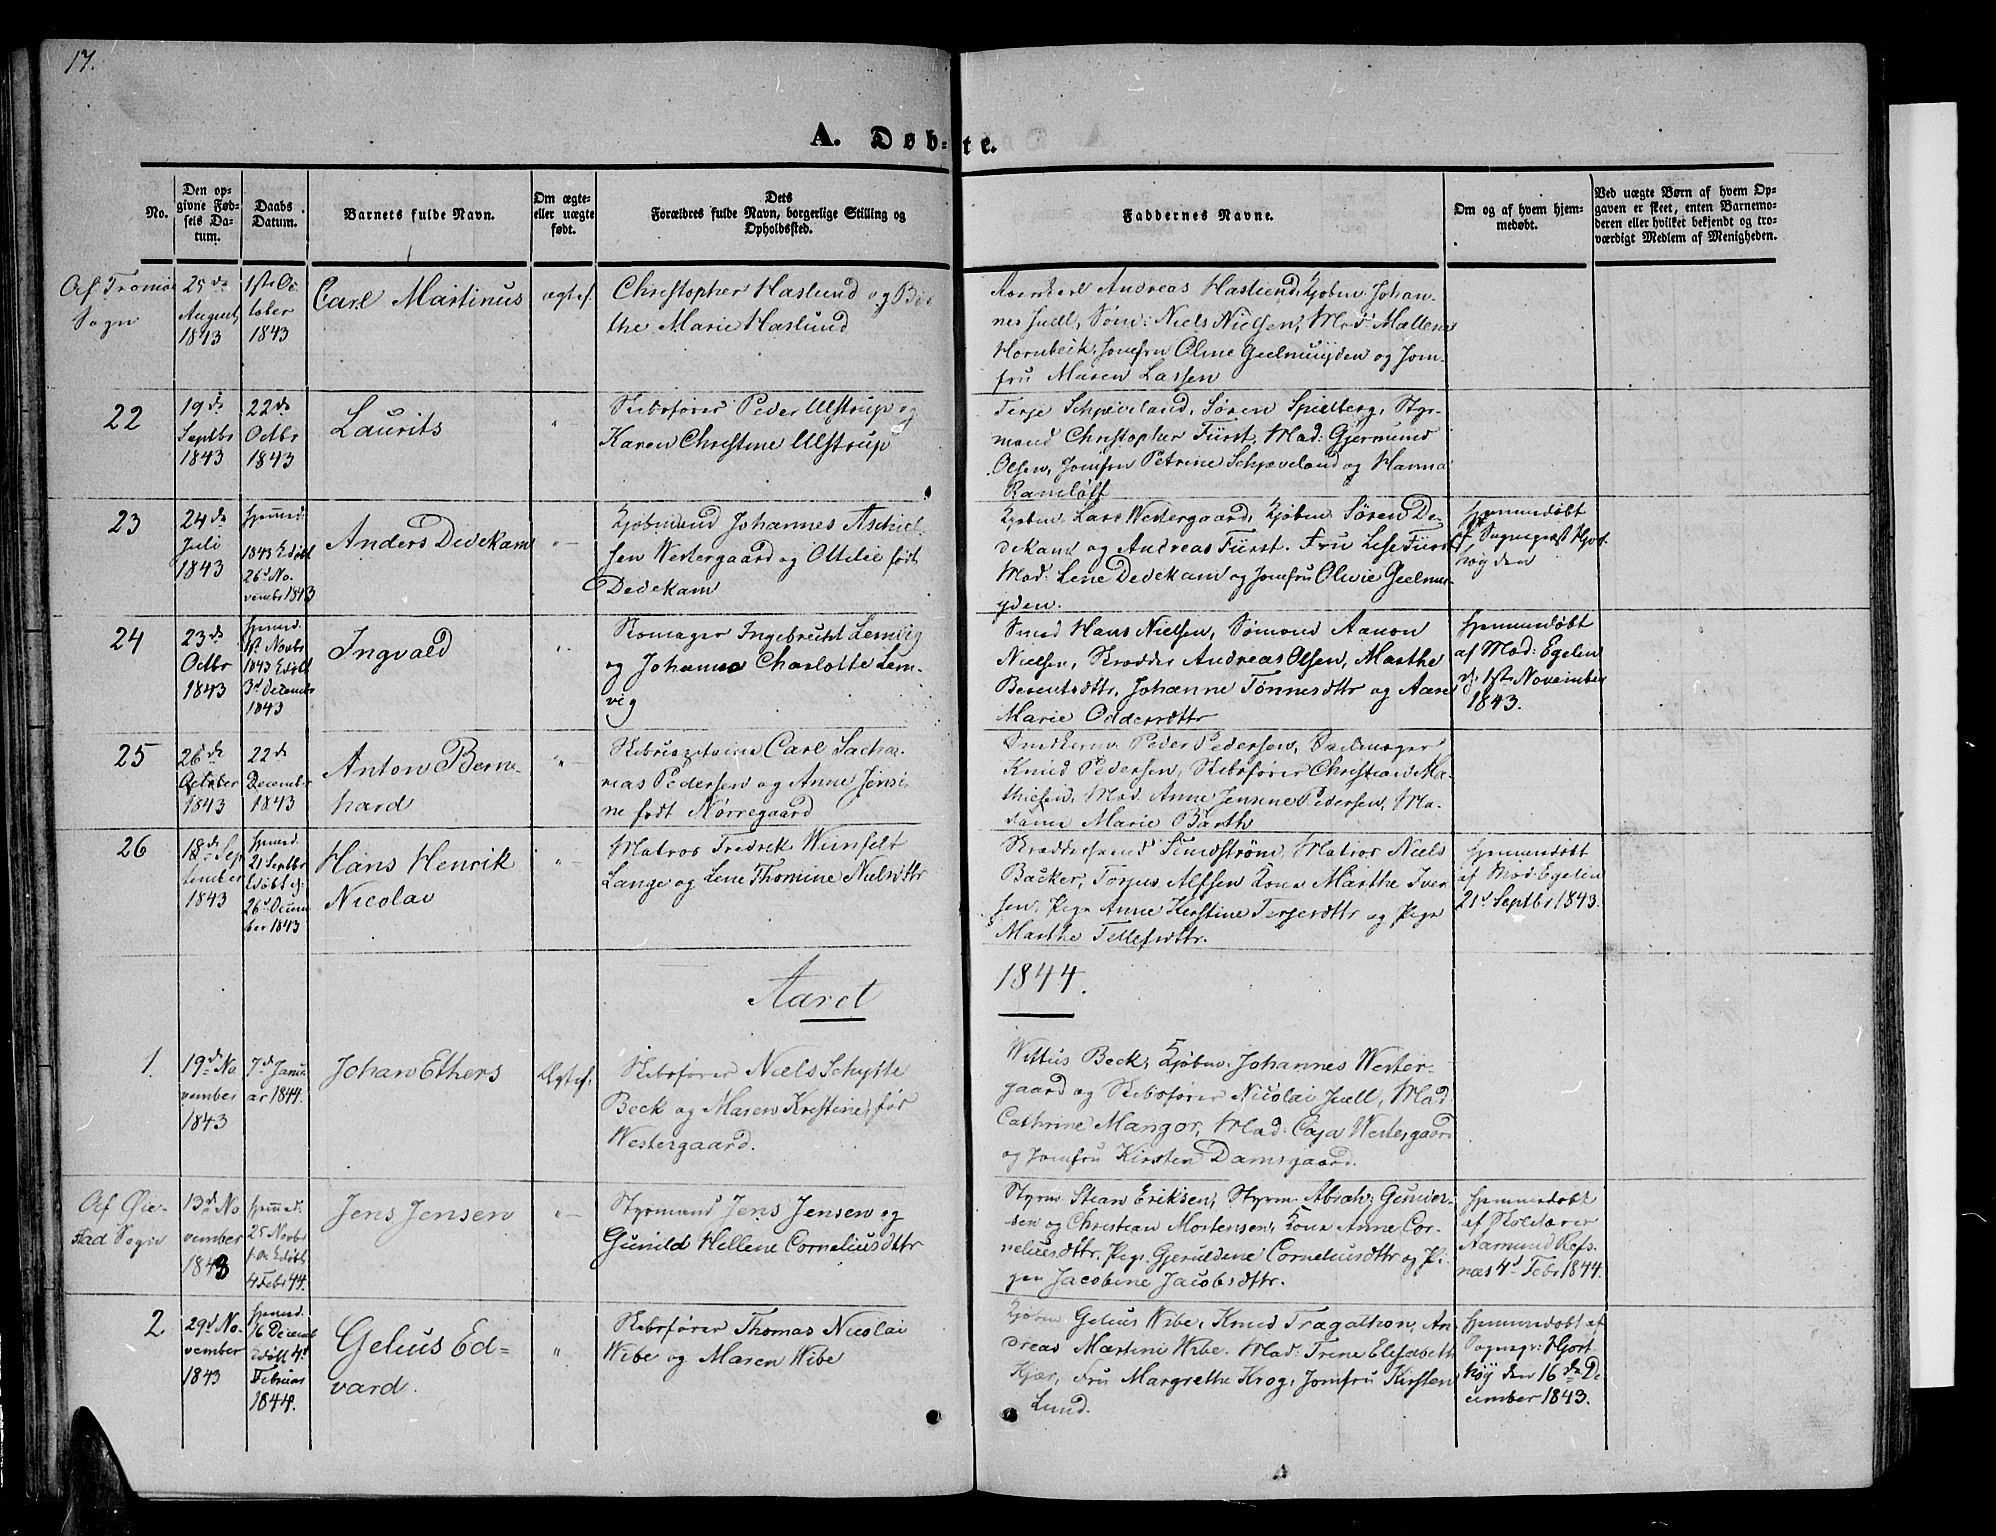 17.
A. Døb-te.
No.
Den op-
givne Fød-
sels Da-
tum.
Daabs
Datum.
Barnets fulde Navn.
Om ægte-
eller uægte
født.
Dets
Forældres fulde Navn, borgerlige Stilling og
Opholdssted.
Faddernes Navne.
Om og af hvem hjem-
medøbt.
Ved uægte Børn af hvem Op-
gaven er skeet, enten Barnemo-
deren eller hvilket bekjendt og tro-
værdigt Medlem af Menigheden.
Af Tromø
Sogn
25de
August
1843
1ste Oc
tober
1843
Carl Martinus
ægtef.
Christopher Haslund og Bir
the Marie Haslund
Andreas Haslund, Kjøbm. Johan-
nes Juell, Søm: Niels Nielsen, Mad: Mallene
Hornbeck, Jomfru Oline Geelmuyden og Jom-
fru Maren Lassen
22
19de
Septbr
1843
22de
Octbr
1843
Laurits
"
Skibsfører Peder Ulstrup og
Karen Christine Ulstrup
Terje Schjøveland, Søren Spielberg, Styr-
mand Christopher Fürst, Mad: Gjermund
Olsen, Jomfru Petrine Schjøveland og Hanna
Ramløff
23
24de
Juli
1843
hjemmed.
1843 Edøbt
26d No-
vembr 1843
Anders Dedekam
"
Kjøbmand Johannes Aschiel-
sen Westergaard og Ottilie født
Dedekam
Kjøbm. Lars Westergaard, Kjøbm. Søren De-
dekam og Andreas Fürst. Fru Lise Fürst
Mad: Lene Dedekam og Jomfru Olivie Geelmu-
yden.
hjemmedøbt
af Sognepræst Hjort-
høy den
24
23de
Octbr
1843
hjemmed.
1st Novbr
1843 Edøbt
3d Decembr
1843
Ingvald
"
Skomager Ingebrecht Lemvig
og Johanne Charlotte Lem-
vig
Smed Hans Nielsen, Sømand Aanon
Nielsen, Skrædder Andreas Olsen, Marthe
Berentsdttr, Johanne Tønnesdttr og Aase
Marie Oddersdttr
hjemmedøbt
af Mad: Egelen
d. 1ste November
1843.
25
26de
October
1843
22de
December
1843
Anton Bern-
hard
"
Skibscaptaine Carl Sacha-
rias Pedersen og Anne Jensi-
ne født Nørregaard
Peder Pedersen, Seilmager
Knud Pedersen, Skibsfører Christian Ma-
thiesen, Mad. Anne Jensine Pedersen, Ma-
dame Marie Barth
26
18de Sep
tember
1843
hjemmed.
21 Septbr
Edøbt
26d Decem
ber 1843
Hans Henrik
Nicolai
"
Matros Fredrik Wünfelt
Lange og Lene Thomine Nielsdttr
Skræddersvend Sundstrøm, Matros Niels
Backer, Torjus Alfsen Kone Marthe Iver
sen, Pige Anne Kirstine Terjesdttr og Pige
Marthe Tellefsdttr.
hjemmedøbt
af Mad: Egelen
21d Septbr 1843.
Aaret
1844.
1.
19de No
vember
1843
7d Janu
ar 1844.
Johan Ethers
Ægtef.
Skibsfører Niels Schytte
Beck og Maren Kirstine, før
Westergaard.
Wittus Beck, Kjøbm. Johannes Wester-
gaard og Skibsfører Nicolai Juell, Mad
Cathrine Mangor, Mad: Caja Westergaard
og Jomfru Kirsten Damsgaard.
Af Øie-
stad Sogn
13de No
vember
1843
hjemmed.
25 Novbr
Edøbt
4 Febr 44.
Jens Jensen
"
Styrmand Jens Jensen og
Gunild Hellene Corneliusdttr
Styrm. Stian Eriksen, Styrm. Abrah: Gunder-
sen og Christian Mortensen, Kone Anne Cor-
neliusdttr, Pige Gjeruldine Corneliusdttr og Pi-
gen Jacobine Jacobsdttr.
hjemmedøbt
af Skolelærer
Aamund Refs-
næs 4d Febr 1844.
2
29d No-
vember
1843
hjemmed.
16 Decembr
Edøbt 4d
Februar
1844.
Gelius Ed=
vard.
"
Skibsfører Thomas Nicolai
Wibe og Maren Wibe
Kjøbm. Gelius Wibe, Knud Tragathon, An
dreas Martini Wibe. Mad: Trine Elisabeth
Kjær, Fru Margrethe Krog, Jomfru Kirsten
Lund.
hjemmedøbt af
Sognepr: Hjort
høy den 16de De
cember 1843.